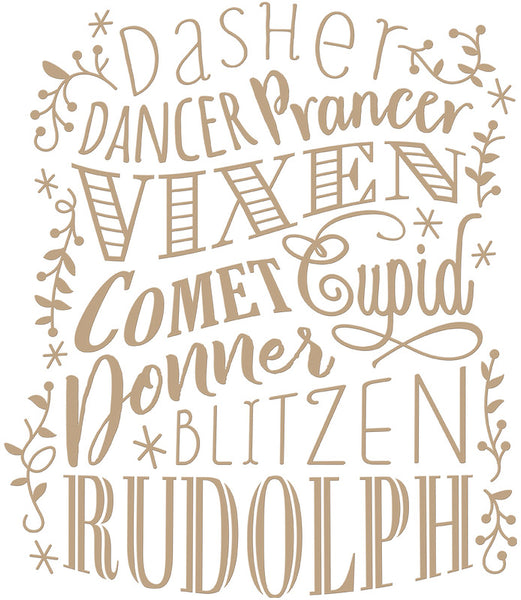 DasHer
DANCER Prancer
VIXEN
COMET Cupid
Donner
BLITZEN
RUDOLPH